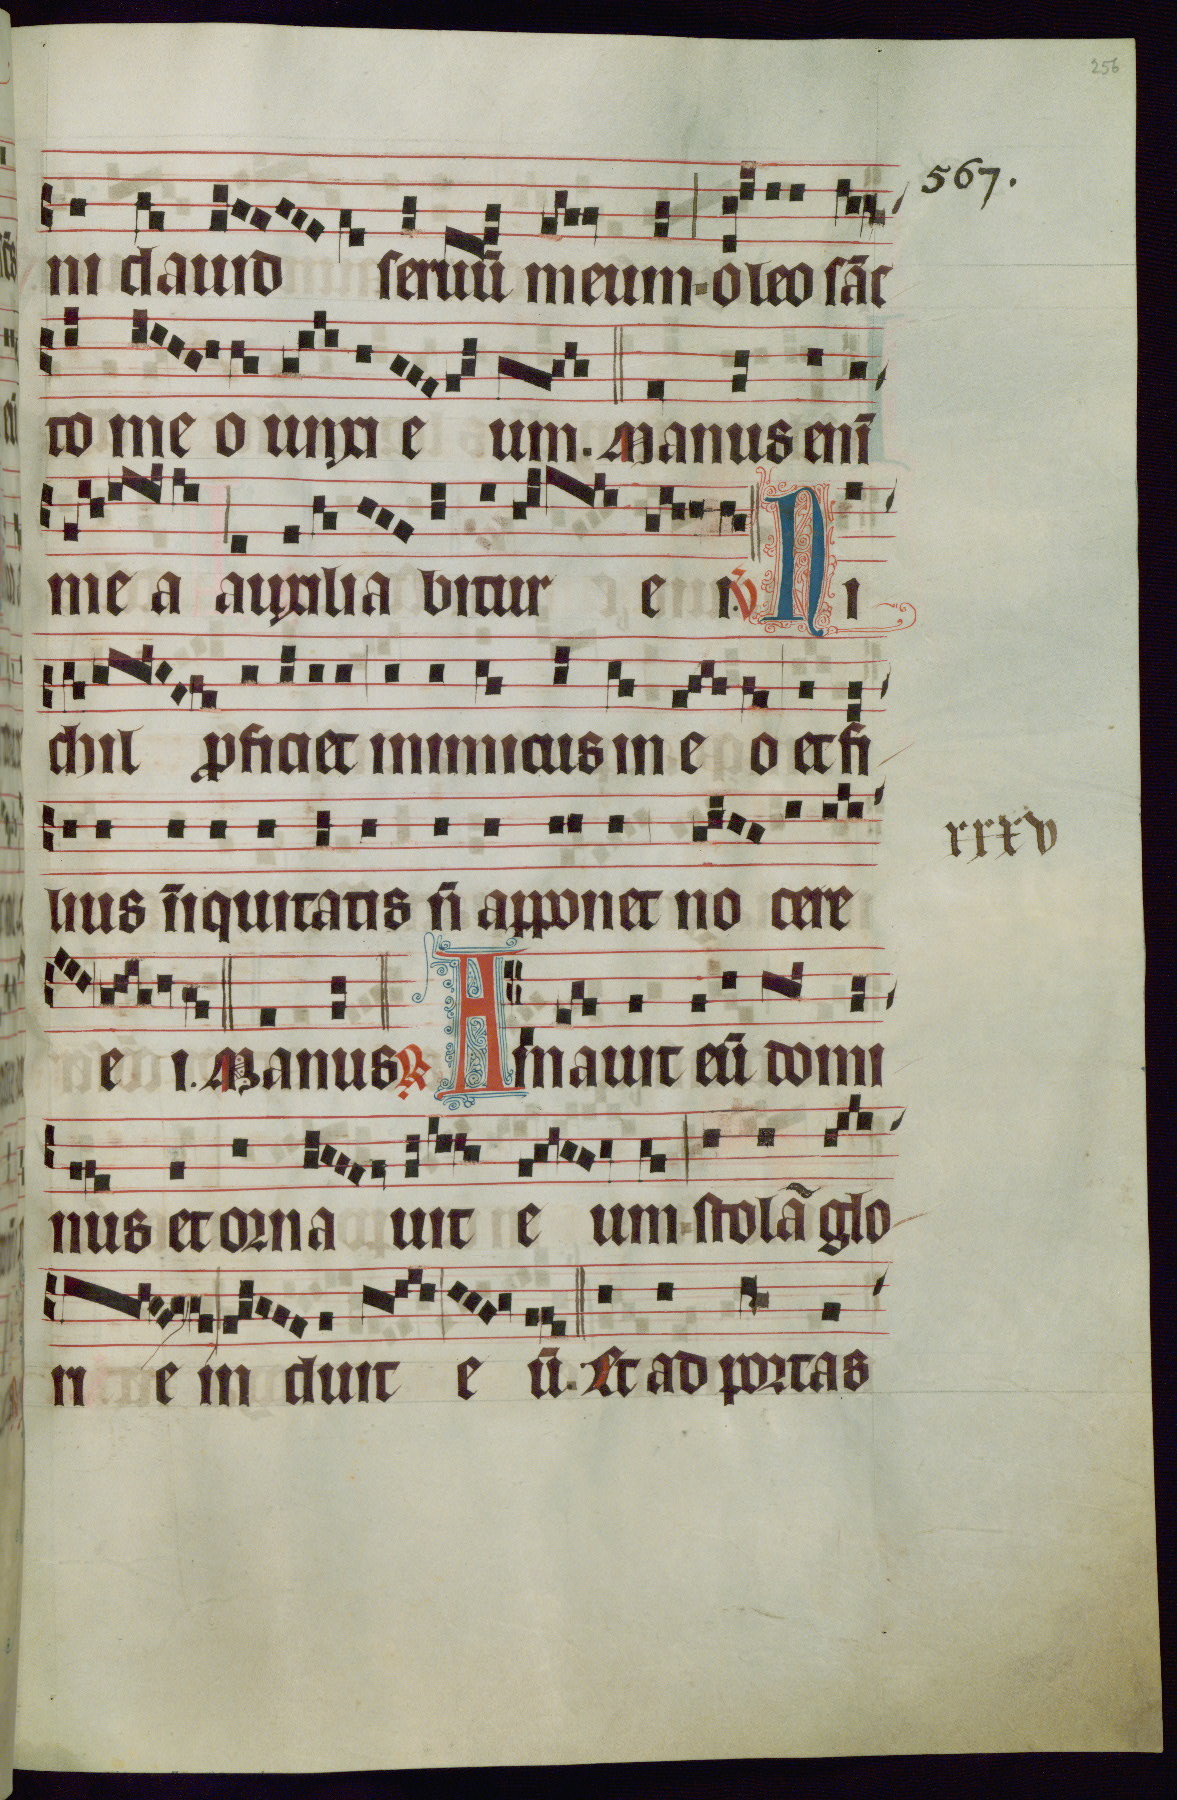 256
567.
ni dauid seruū meum · oleo sāc
to me o unxi e um. Manus enī
me a auxilia bitur e i. V̄ Ni
chil ꝓficiet inimicus in e o et fi
lius īiquitatis n̄ apponet no cere
xxxv
e i. Manus R Amauit eū domi
nus et orna uit e um · stolā glo
ri e in duit e ū. Et ad portas